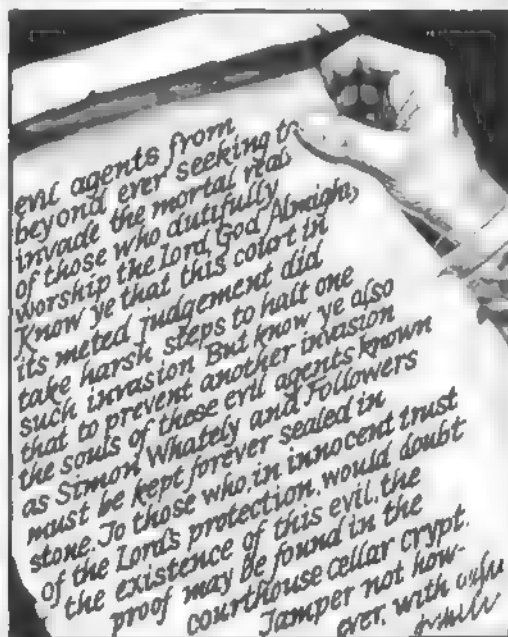 evil agents from
beyond ever seeking
invade the mortal
of those who dutifully
worship the Lord God Almighty
Know ye that this court in
its meted judgement did
take harsh steps to halt one
such invasion But know ye also
that to prevent another invasion
the souls of these evil agents known
as Simon Whately and Followers
must be kept forever sealed in
stone. To those who, in innocent trust
of the Lord's protection, would doubt
the existence of this evil, the
proof may be found in the
courthouse cellar crypt.
Tamper not how-
ever, with